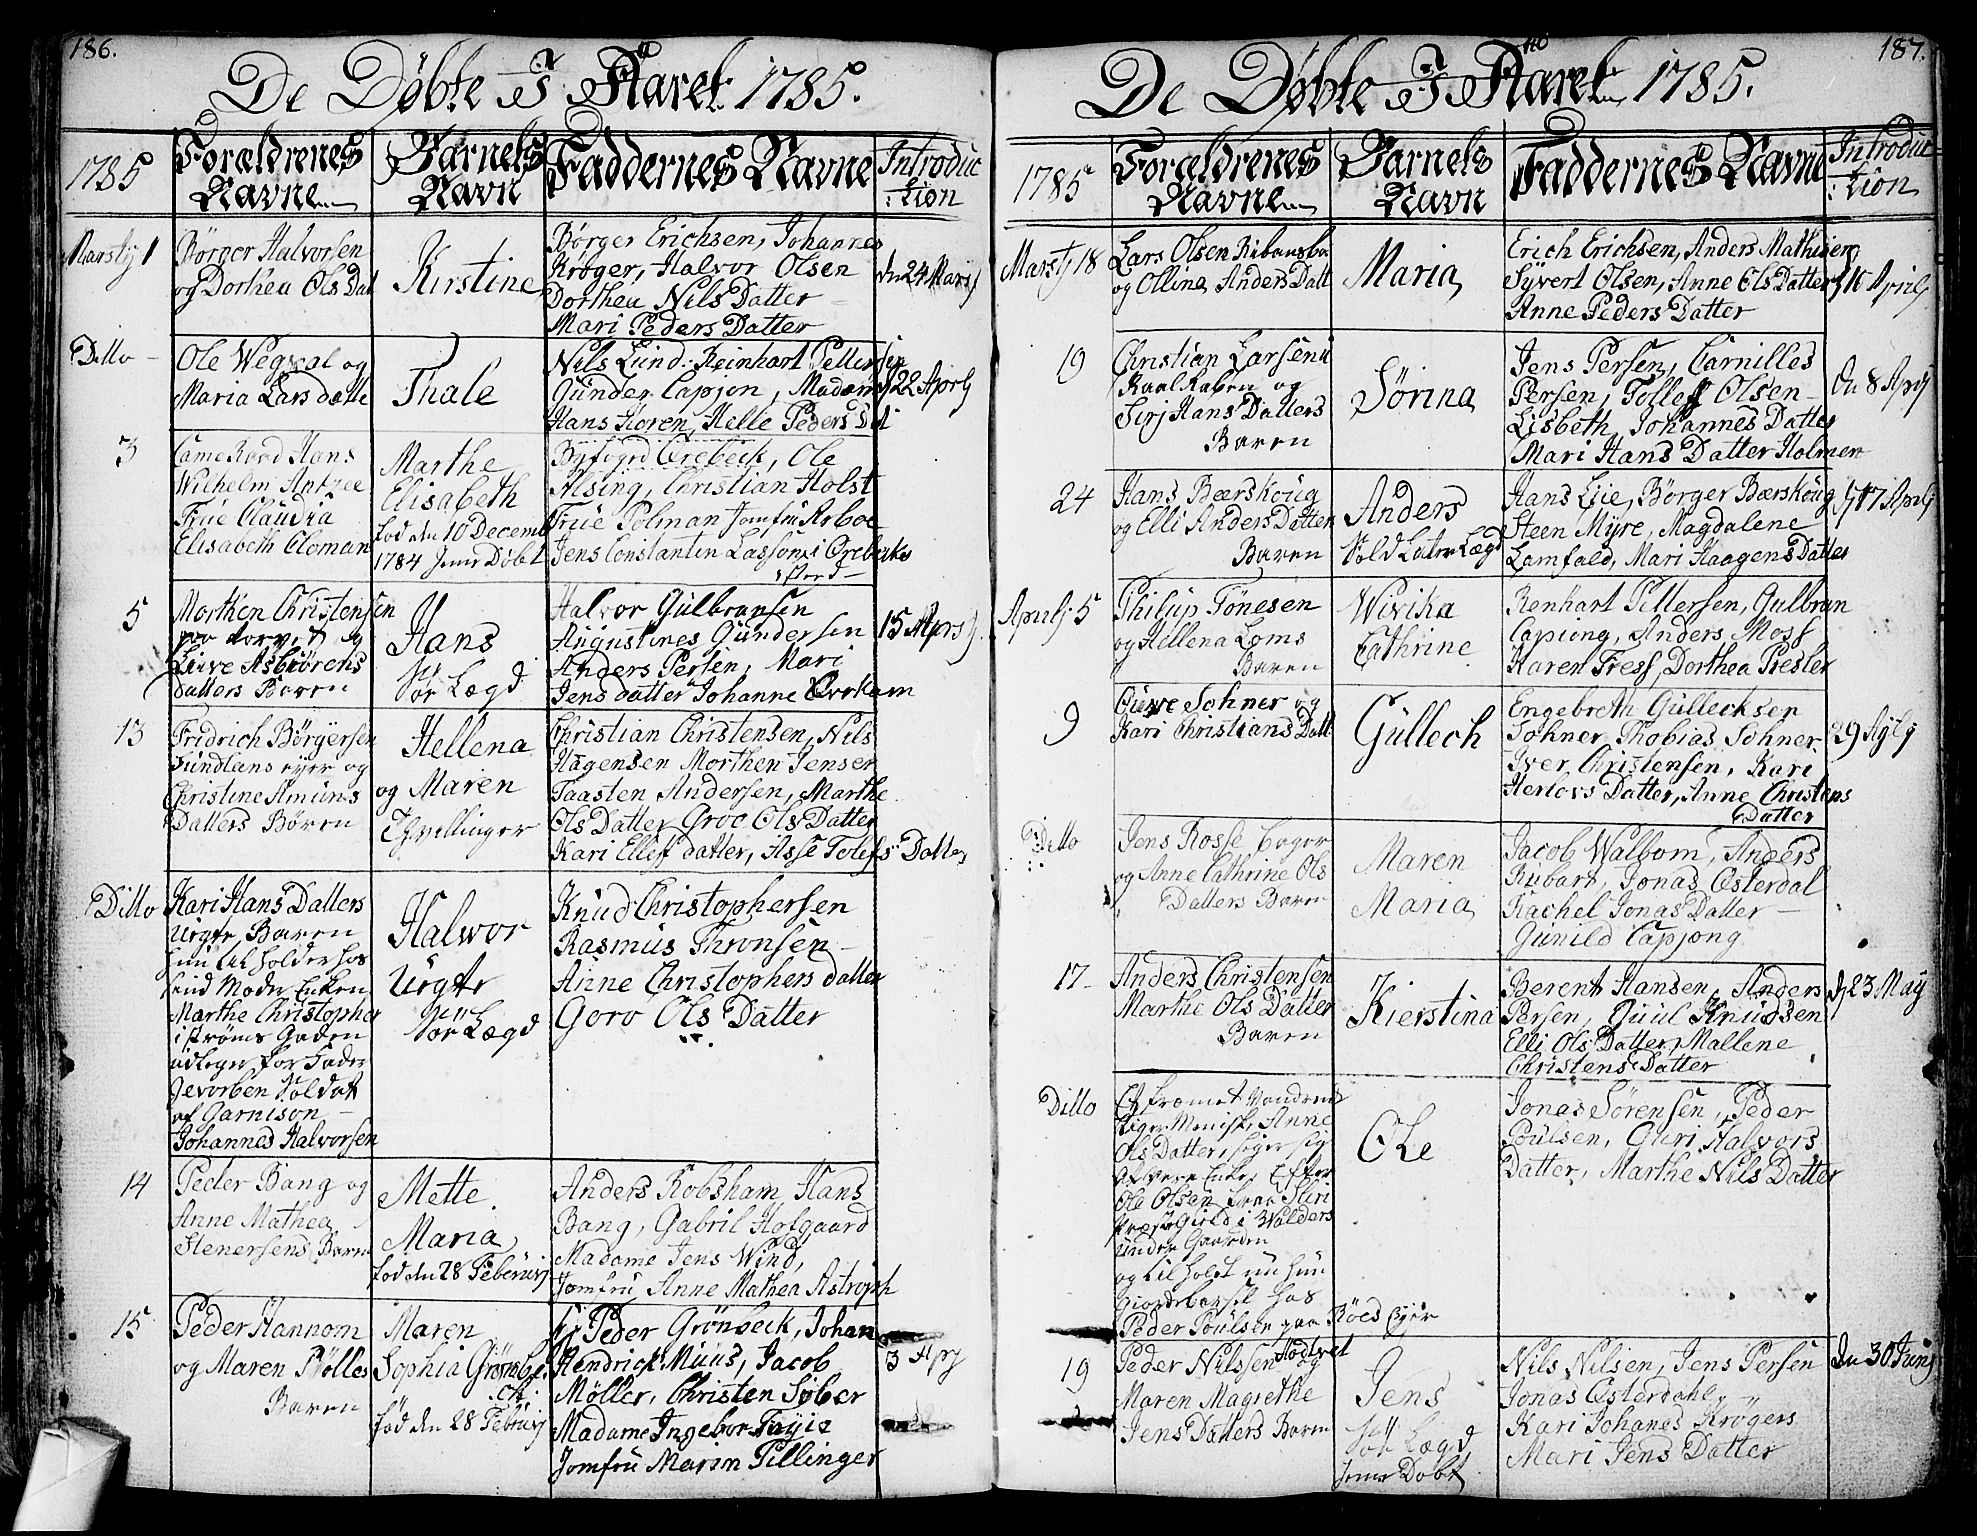 186.
De Døbte I Aaret 1785.
1785
Forældrenes Navne
Barnets Navn
Faddernes Navne
Introduc:tion
Martij 1
Børger Halvorsen
og Dorthea Ols Dat
Kirstine
Børger Erichsen, Johannes
Krøger, Halvor Olsen
Dorthea Nils Datter
Mari Peders Datter
dn 24 Marij
Ditto
Ole Wegxal og
Maria Lars datte
Thale
Nils Lund. Reinhart Pettersen
Gunder Capjon, Madame
Hans Horen, Helle Peders Dat
22 Aprij
3
Came Raad Hans
Wilhelm
Frue Claudia
Elisabeth Cloman
Marthe
Elisabeth
fød den 10 Decemb
1784 Jemr Døbt
Byfogd Orebeck, Ole
Alsing, Christian Holst
Frue Polman Jomfru Arboe
Jens Constantin Lasson i Orebeks
sted
5
Morthen Christensen
paa torvet og
Live Asbiørens
datters Baren
Hans
Sør Lægd
Halvor Gulbransen
Augustines Gundersen
Anders Persen, Mari
Jens datter Johanne Ørekam
15 Aprij
13
Fridrich Børgersen
Sundløns eyer og
Christine Amunds
Datters Børen
Hellena
og Maren
Thvillinger
Christian Christensen, Nils
Hagensen Morthen Jensen
Taasten Andersen, Marthe
Ols Datter Groe Ols Datter
Kari Ellef datter, Asse Tolefs Datter
Ditto
Kari Hans Datters
Uægte Baren
hun til holder hos
sind Moder Enken
Marthe Christopher
i strøms Gaden
udlegger for Fader
Gevorben Soldat
af Garnison
Johannes Halvorsen
Halwor
Uægte
Sør Lægd
Knud Christophersen
Rasmus Thronsen
Anne Christophers datter
Goro Ols Datter
14
Peder Bang og
Anne Mathea
Stenersens Baren
Mette
Maria
fød den 28 Feberuarij
Anders Robsham, Hans
Bang, Gabril Hofgaard
Madame Jens Wind,
Jomfru Anne Mathea Astroph
15
Peder Hannom
og Maren Bølles
Baren
Maren
Sophia Grønbe
ck.
fød den 28 Feberuarij
Hr Peder Grønbeck, Johan
Hendrick Muus, Jacob
Møller, Christen Søber
Madame Ingebor Trye
Jomfru Marim Pillinger
3 Aprj
187.
De Døbte I Aaret 1785.
1785
Forældrenes Navne
Barnets Navn
Faddernes Navne
Introduc:tion
Martij 18
Lars Olsen Ribansbo
og Olline Anders Datt
Maria
Erich Erichsen, Anders Mathisen
Syvert Olsen, Anne Ols Datter
Anne Peders Datter
16 Aprilj
19
Christian Larsen
Raal Raben og
Sirj Hans Datters
Baren
Sørina
Jens Persen, Cornilles
Persen, Tollef Olsen
Lisbeth Johannes Datter
Mari Hans Datter Holmen
dn 8 Aprj
24
Hans Bærskoug
og Elli Anders Datter
Baren
Anders
Sold Later Lægd
Hans Lie, Børger Bærskoug
Steen Myre, Magdalene
Lamfald, Mari Haagens Datter
17 Aprilj
Aprilj 5
Philip Tønesen
og Hellena Loms
Baren
Wivika
Cathrine
Renhart Pettersen, Gulbran
Capiong, Anders Moss
Karen Fress, Dorthea Presler
9
Ouwe Sohner og
Kari Christians Datt
Gullech
Engebreth Gullecksen
Sohner, Thobias Sohner
Iver Christensen, Kari
Herlovs Datter, Anne Christens
Datter
29 Aplj
Ditto
Jens Rosse bager
og Anne Cathrine Ols
Datters Baren
Maren
Maria
Jacob Walbom, Anders
Rubart, Jonas Østerdal
Rachel Jonas Datter
Gunild Capjong
17
Anders Christensen
Marthe Ols Datter
Baren
Kierstina
Berent Hansen, Anders
Persen, Guul Knudsen
Elli Ols Datter, Mallene
Christens Datter
d 23 May
Ditto
Et fræmet Vandrend
tiger Menisk, Anne
Ols Datter, siger sig
at være Enke Efter
Ole Olsen fraa Slire
Præste Gield i Walders
under Gaarden
og til holdt nu hun
Giorde barsel hos
Peder Poulsen paa Røed Eyer
Ole
Jonas Sørensen, Peder
Poulsen, Guri Halvors
Datter, Marthe Nils Datter
19
Peder Nilssen Hodtvet
og
Maren Magrethe
Jens Datters Baren
Jens
Sør Lægd
Jemr Døbt
Nils Nilsen, Jens Persen
Jonas Østerdahl
Kari Johanes Krøgers
Mari Jens Datter
dn 30 Junj